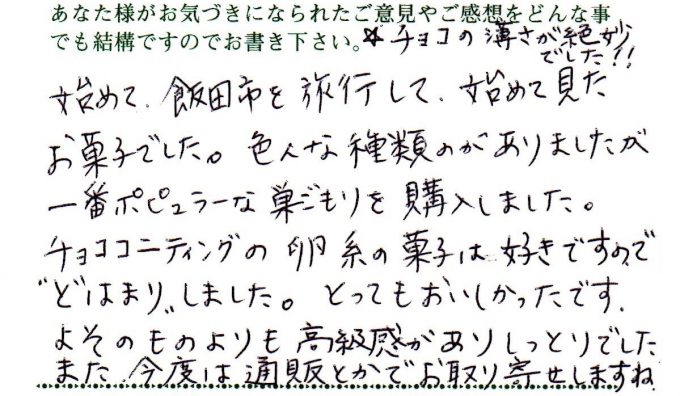 あなた様がお気づきになられたご意見やご感想をどんな事
でも結構ですのでお書き下さい。
☆チョコの薄さが絶妙
でした!!
始めて、飯田市を旅行して、始めて見た
お菓子でした。色んな種類のがありましたが
一番ポピュラーな巣ごもりを購入しました。
チョココーティングの卵系の菓子は好きですので
"どはまり"しました。とってもおいしかったです。
よそのものよりも高級感がありしっとりでした
また、今度は通販とかでお取り寄せしますね